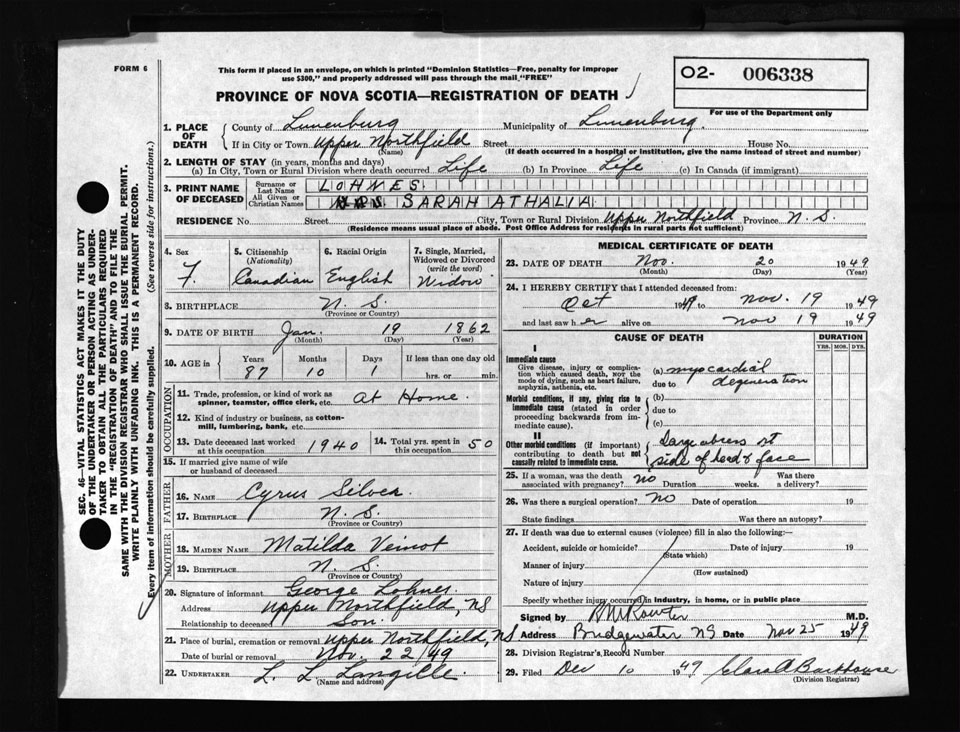 FORM 6
This form if placed in an envelope, on which is printed "Dominion Statistics—Free, penalty for improper
use $300," and properly addressed will pass through the mail "FREE"
O2- 006338
For use of the Department only
PROVINCE OF NOVA SCOTIA—REGISTRATION OF DEATH
SEC. 46—VITAL STATISTICS ACT MAKES IT THE DUTY
OF THE UNDERTAKER OR PERSON ACTING AS UNDER-
TAKER TO OBTAIN ALL THE PARTICULARS REQUIRED
IN THE "REGISTRATION OF DEATH" AND TO FILE THE
SAME WITH THE DIVISION REGISTRAR WHO SHALL ISSUE THE BURIAL PERMIT.
WRITE PLAINLY WITH UNFADING INK. THIS IS A PERMANENT RECORD.
Every item of information should be carefully supplied. (See reverse side for instructions.)
1. PLACE OF DEATH County of Lunenburg Municipality of Lunenburg.
If in City or Town Upper Northfield Street House No.
(Name) (If death occurred in a hospital or institution, give the name instead of street and number)
2. LENGTH OF STAY (in years, months and days)
(a) In City, Town or Rural Division where death occurred Life (b) In Province Life (c) In Canada (if immigrant)
3. PRINT NAME OF DECEASED Surname or Last Name LOHNES
All Given or Christian Names SARAH ATHALIA
RESIDENCE No. Street City, Town or Rural Division Upper Northfield Province N.S.
(Residence means usual place of abode. Post Office Address for residents in rural parts not sufficient)
4. Sex F.
5. Citizenship (Nationality) Canadian
6. Racial Origin English
7. Single, Married, Widowed or Divorced (write the word) Widow
8. BIRTHPLACE N.S.
(Province or Country)
9. DATE OF BIRTH Jan. 19 1862
(Month) (Day) (Year)
10. AGE in Years Months Days If less than one day old
87 10 1 hrs. or min.
OCCUPATION
11. Trade, profession, or kind of work as spinner, teamster, office clerk, etc. At Home.
12. Kind of industry or business, as cotton-mill, lumbering, bank, etc.
13. Date deceased last worked at this occupation 1940 14. Total yrs. spent in this occupation 50
15. If married give name of wife or husband of deceased
FATHER
16. NAME Cyrus Silver.
17. BIRTHPLACE N.S.
(Province or Country)
MOTHER
18. MAIDEN NAME Matilda Veinot
19. BIRTHPLACE N.S.
(Province or Country)
20. Signature of informant George Lohnes
Address Upper Northfield, NS
Relationship to deceased Son.
21. Place of burial, cremation or removal Upper Northfield, NS
Date of burial or removal Nov. 22/49
22. UNDERTAKER L. L. Langille.
(Name and address)
MEDICAL CERTIFICATE OF DEATH
23. DATE OF DEATH Nov. 20 1949
(Month) (Day) (Year)
24. I HEREBY CERTIFY that I attended deceased from:
Oct 1949 to Nov. 19 1949
and last saw her alive on Nov 19 1949
CAUSE OF DEATH DURATION
YRS. MOS. DYS.
I
Immediate cause
Give disease, injury or complication which caused death, NOT the mode of dying, such as heart failure, asphyxia, asthenia, etc.
(a) myocardial
due to degeneration
Morbid conditions, if any, giving rise to immediate cause (stated in order proceeding backwards from immediate cause).
(b)
due to
(c)
II
Other morbid conditions (if important) contributing to death but not causally related to immediate cause.
Large abcess rt
side of head & face
25. If a woman, was the death associated with pregnancy? no Duration weeks. Was there a delivery?
26. Was there a surgical operation? no Date of operation 19
State findings Was there an autopsy?
27. If death was due to external causes (violence) fill in also the following:—
Accident, suicide or homicide? Date of injury 19
(State which)
Manner of injury
(How sustained)
Nature of injury
Specify whether injury occurred in industry, in home, or in public place
Signed by M.D.
Address Bridgewater NS Date Nov 25 1949
28. Division Registrar's Record Number
29. Filed Dec 10 1949 Clara A Barkhouse
(Division Registrar)